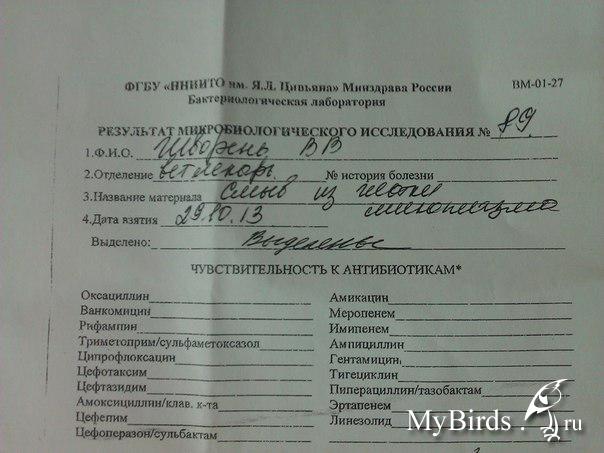 ФГБУ «ННИИТО им. Я.Л. Цивьяна» Минздрава России ВМ-01-27
Бактериологическая лаборатория
РЕЗУЛЬТАТ МИКРОБИОЛОГИЧЕСКОГО ИССЛЕДОВАНИЯ № 89
1.Ф.И.О. Шворень ВВ
2.Отделение ветлекарь № история болезни
3.Название материала Смыв из
микоплазма
4.Дата взятия 29.10.13
Выделено: Выделены
ЧУВСТВИТЕЛЬНОСТЬ К АНТИБИОТИКАМ*
Оксациллин Амикацин
Ванкомицин Меропенем
Рифампин Имипенем
Триметоприм/сульфаметоксазол Ампициллин
Ципрофлоксацин Гентамицин
Цефотаксим Тигециклин
Цефтазидим Пиперациллин/тазобактам
Амоксициллин/клав. к-та Эртапенем
Цефепим Линезолид
Цефоперазон/сульбактам
MyBirds.ru